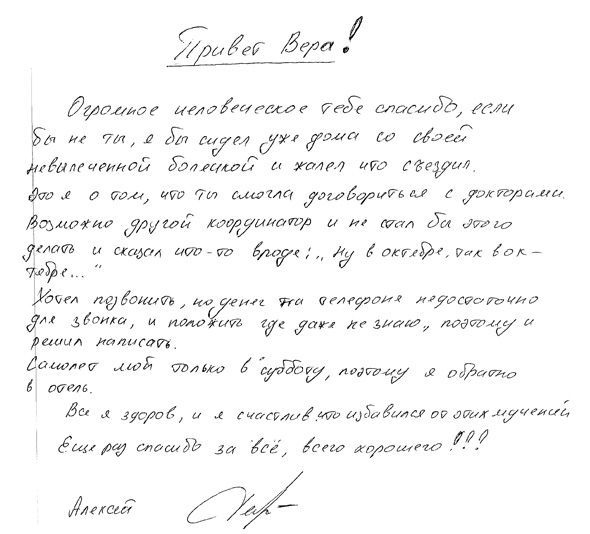 Привет Вера!
Огромное человеческое тебе спасибо, если
бы не ты, я бы сидел уже дома со своей
невылеченной болячкой и жалел что съездил.
Это я о том, что ты смогла договориться с докторами.
Возможно другой координатор и не стал бы этого
делать и сказал что-то вроде: „Ну в октябре, так в ок-
тябре..."
Хотел позвонить, но денег на телефоне недостаточно
для звонка, и положить где даже не знаю, поэтому и
решил написать.
Самолет мой только в субботу, поэтому я обратно
в отель.
Все я здоров, и я счастлив что избавился от этих мучений
Еще раз спасибо за всё, всего хорошего!!!
Алексей